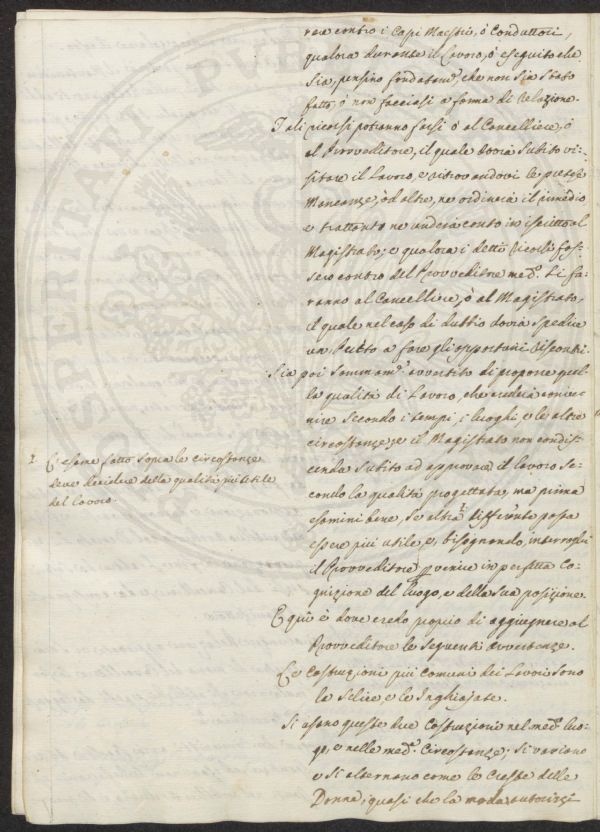 rea contro i Capi Maestri, ó Conduttori,
qualora durante il Lavoro, ó eseguito che
sia, pensino fondatam.e, che non sia stato
fatto, ó non facciasi a forma di Relazione.
Tali ricorsi potranno farsi ó al Cancelliere, ó
al Provveditore, il quale dovrà subito vi-
sitare il Lavoro, e ritrovandovi le pretese
Mancanze, ò d'altre, ne ordinerà il rimedio
e trattanto ne renderà conto in iscritto al
Magistrato; e qualora i detti Ricorsi fos-
sero contro del Provveditore med.o si fa-
ranno al Cancelliere, ó al Magistrato,
il quale nel caso di dubbio dovrà spedire
un Perito a fare gli opportuni riscontri.
Sia poi sommam.e avvertito di proporre quel-
la qualità di Lavoro, che crederà conve-
nire secondo i tempi, i luoghi, e le altre
circostanze, e il Magistrato non condis-
cenda subito ad approvare il lavoro se-
condo la qualità progettata, ma prima
esamini bene, se altra differente possa
essere più utile, e, bisognando, interroghi
il Provveditore per venire in perfetta Co-
gnizione del luogo, e della sua posizione.
E quì è dove credo proprio di aggiugnere al
Provveditore le seguenti Avvertenze.
Le Costruzioni più comuni dei Lavori sono
la Selice, e le Inghiajate.
Si usano queste due Costruzioni nel med.o luo-
go, e nelle med.e Circostanze; si variano
e si alternano come le Creste delle
Donne, quasi che la moda autorizzi
L'esame fatto sopra le circostanze
deve decidere della qualità più utile
del lavoro.